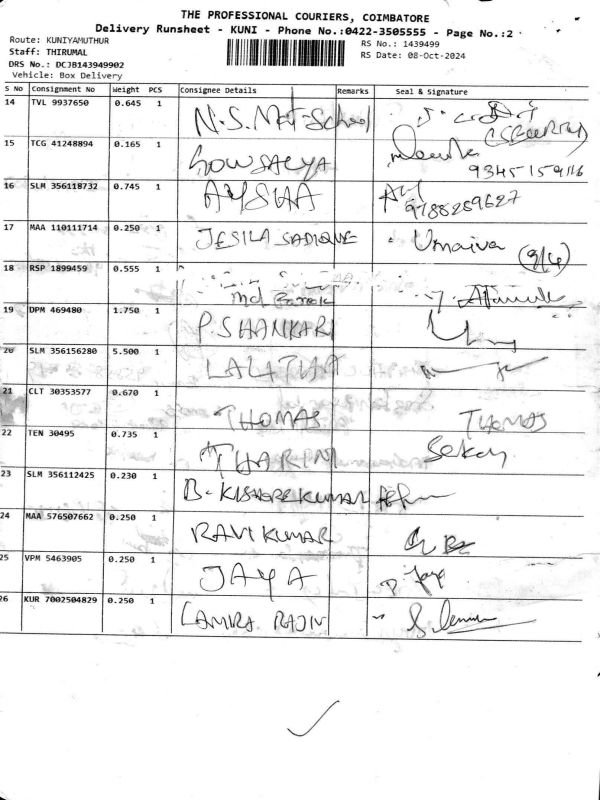 THE PROFESSIONAL COURIERS, COIMBATORE
Delivery Runsheet - KUNI - Phone No.:0422-3505555 - Page No.:2
Route: KUNIYAMUTHUR
RS No.: 1439499
Staff: THIRUMAL
RS Date: 08-Oct-2024
DRS No.: DCJB143949902
Vehicle: Box Delivery
S No Consignment No Weight PCS Consignee Details Remarks Seal & Signature
14 TVL 9937650 0.645 1 N.S. Mat-School
(SECURITY)
15 TCG 41248894 0.165 1 GOWSALYA
16 SLM 356118732 0.745 1 AYSHA
9788289627
17 MAA 110111714 0.250 1 JESILA SADIQUE Umaiva (9/4)
18 RSP 1899459 0.555 1
19 DPM 469480 1.750 1 P. SHANKARI
20 SLM 356156280 5.500 1 LALATHA
21 CLT 30353577 0.670 1 THOMAS THOMAS
22 TEN 30495 0.735 1 THARINI Sekar
23 SLM 356112425 0.230 1 B. KISHORE KUMAR
24 MAA 576507662 0.250 1 RAVI KUMAR
25 VPM 5463905 0.250 1 JAYA P. Jaya
26 KUR 7002504829 0.250 1